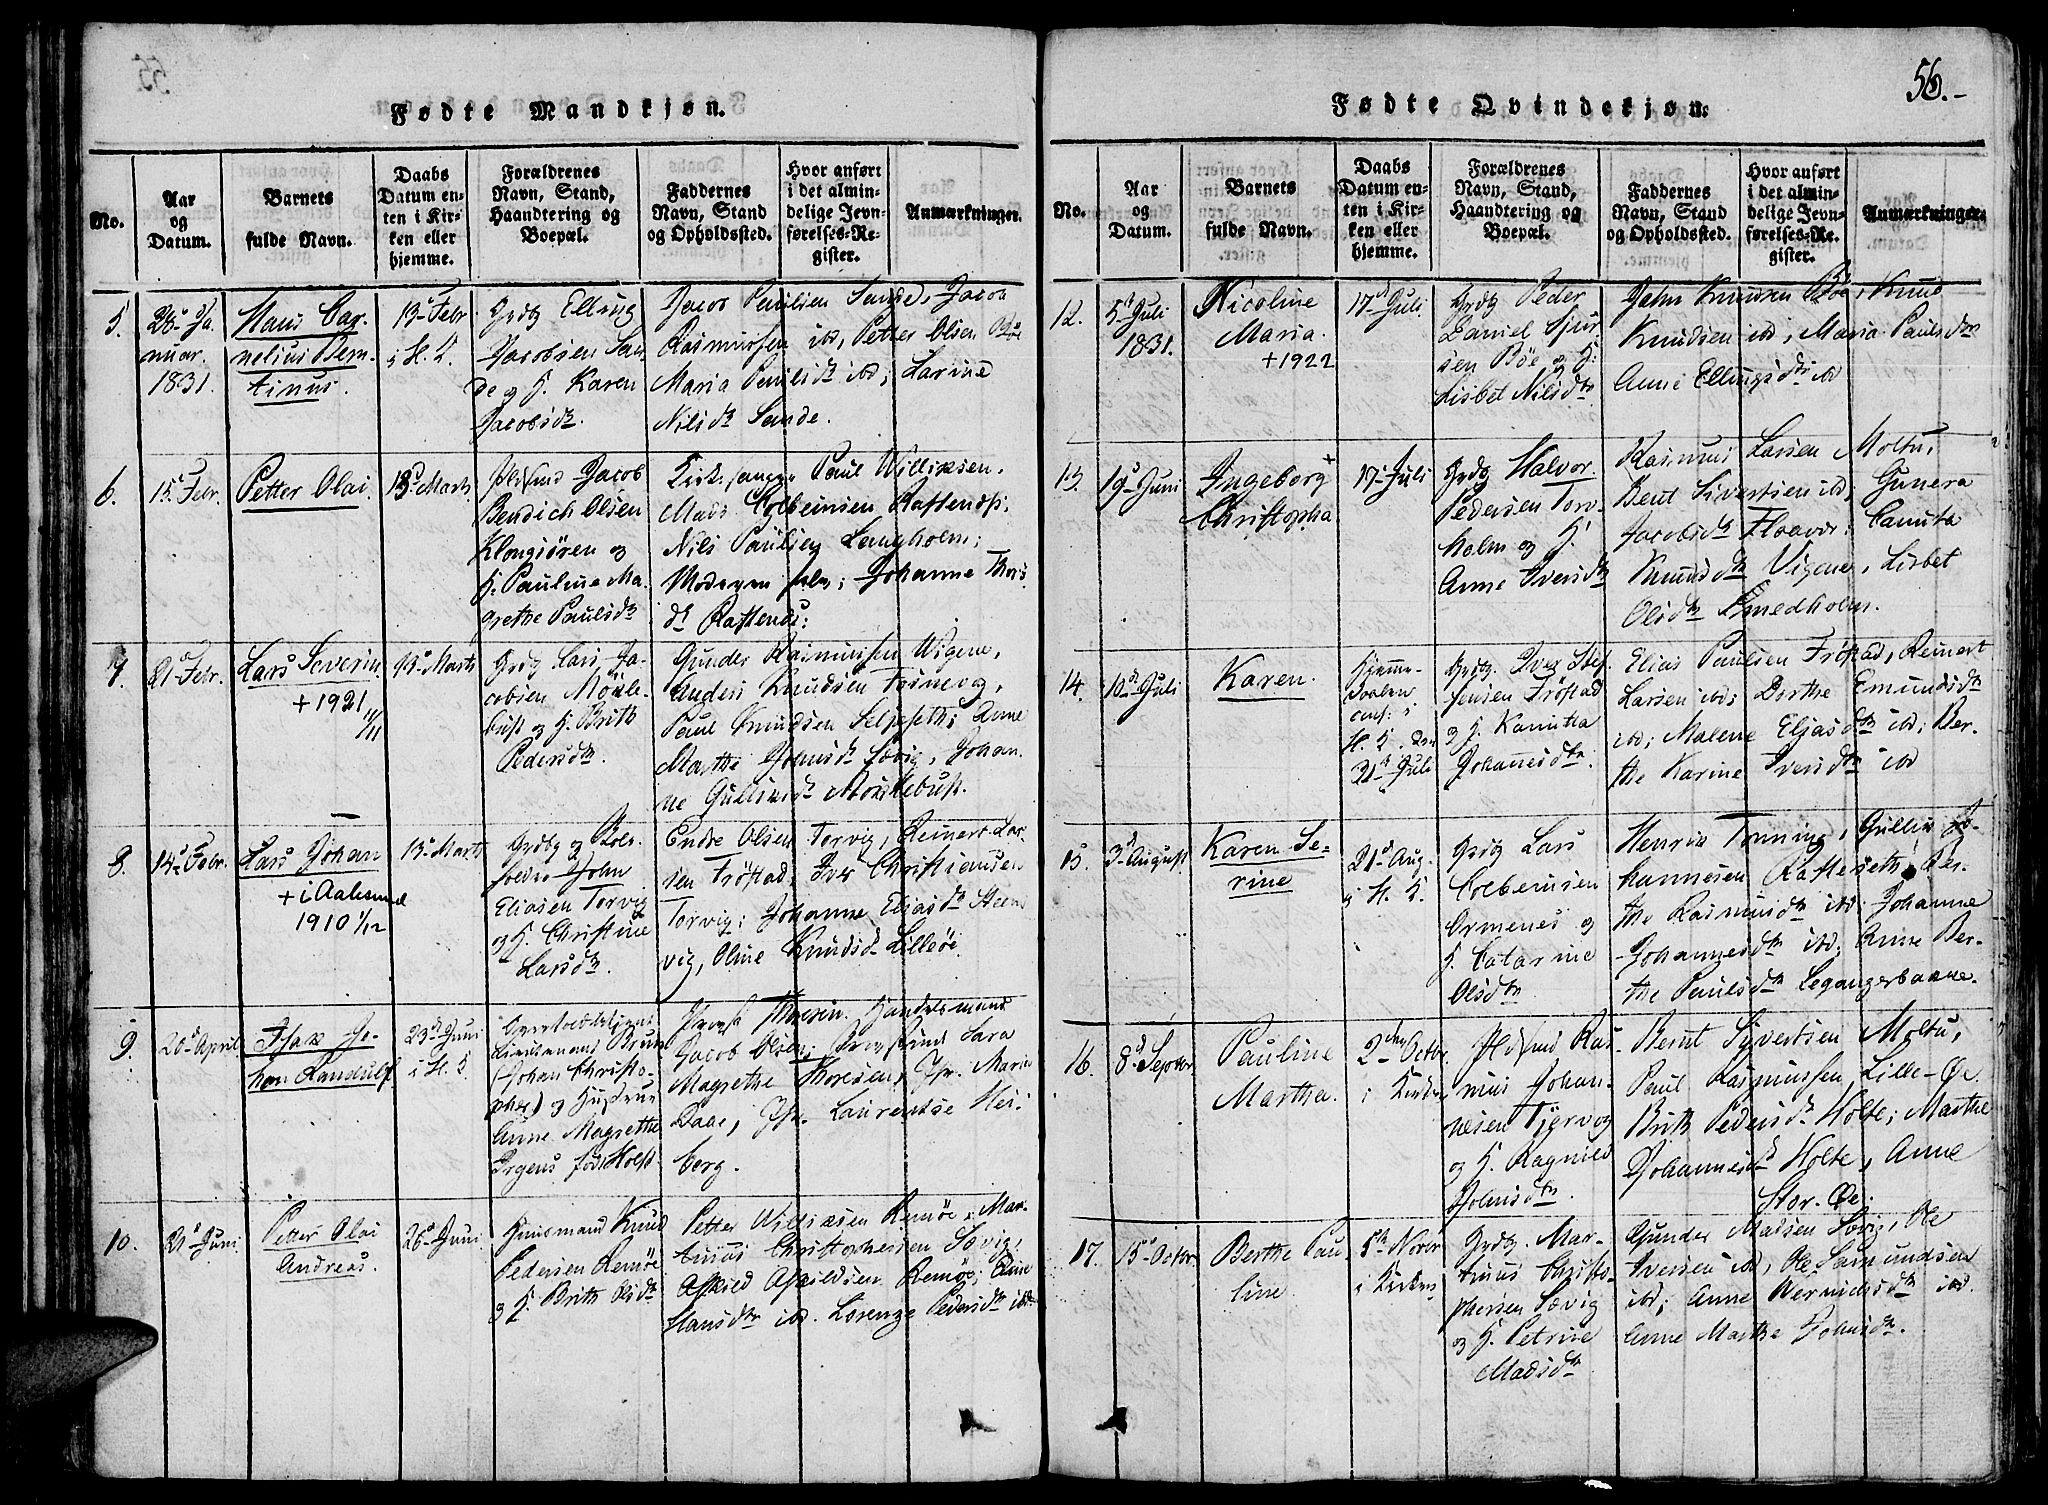 55
Fødte Mandkjøn.
No.
Aar
og
Datum.
Barnets
fulde Navn.
Daabs
Datum en-
ten i Kir-
ken eller
hjemme.
Forældrenes
Navn, Stand,
Haandtering og
Boepæl.
Faddernes
Navn, Stand
og Opholdssted.
Hvor anført
i det almin-
delige Jevn-
førelses-Re-
gister.
Anmærkninger.
5.
28d Ja-
nuar.
1831.
Hans Cor-
nelius Bern-
tinus.
13d Febr
i H. K.
Grdbr Elling
Jacobsen San-
de og H. Karen
Jacobsdtr.
Jacob Paulsen Sande, Jacob
Rasmussen ibd, Petter Olsen Bøe
Maria Paulsdtr ibd; Larine
Nilsdtr Sande.
6.
15d Febr.
Petter Olai.
13d Marts
Jacob
Bendich Olsen
Klongsören og
H. Pauline Ma-
grethe Paulsdtr
Kirkesanger Paul Willixsen,
Mads Colbeinsen Raftenes;
Nils Paulsen Langholm;
Moderen selv; Johanne Thors
dr Raftenes:
7.
21d Febr.
Lars Severin
+ 1921
11/11
13d Marts
Grdbr Lars Ja-
cobsen Mösle-
bust og H. Brith
Pedersdtr.
Gunder Rasmussen Wigene,
Anders Knudsen Tornevig,
Paul Knudsen Selsesethr; Anne
Marthe Johnsdr Sævig, Johan-
ne Gullesdr Moslebust.
8.
14d Febr.
Lars Johan
+ i Aalesund
1910 1/12
13d Marts
Grdbr og
John
Eliasen Torvig
og H. Christine
Larsdtr.
Endre Olsen Torvig, Reinert Lar-
sen Tröstad, Iver Christiansen
Torvig; Johanne Eliasdtr Steens-
vig, Oline Knudsdr Lilleöe.
9.
20d April
Isax Jo-
han Randulf
23d Juni
i H. K.
Lieutenant Bruun
(Johan Christo-
pher) og Hustrue
Anne Magrethe
Ørgens født Holst
Provst Thoresen, Handelsmand
Jacob Olsen; Provstinde Sara
Magrethe Thoresen, Jfr. Maria
Daae, Jfr. Laurentse Hei-
berg.
10.
21d Juni
Petter Olai
Andreas.
26d Juni.
Huusmand Knud
Pedersen Remöe
og H. Brith Olsdtr
Petter Willixsen Remöe, Mar-
tinus Christophersen Sævig,
Askild Askildsen Remöe; Anne
Hansdtr ibd. Lorenze Pedersdtr ibd.
56.-
Fødte Qvindekjøn.
No.
Aar
og
Datum.
Barnets
fulde Navn.
Daabs
Datum en-
ten i Kir-
ken eller
hjemme.
Forældrenes
Navn, Stand,
Haandtering og
Boepæl.
Faddernes
Navn, Stand
og Opholdssted.
Hvor anført
i det almin-
delige Jevn-
førelses-Re-
gister.
Anmærkninger.
12.
5d Juli
1831.
Nicoline
Maria.
+ 1922
17d Juli
Grdbr Peder
Daniel Sjur-
sen Böe og H:
Lisbet Nilsdtr
John Knudsen Böe, Knud
Knudsen ibd, Maria Paulsdtr
Anne Ellingsdtr ibd
13.
19d Juni
Ingeborg +
Christopha
17d Juli
Grdbr Halvor
Pedersen Torv-
holm og H.
Anne Iversdtr
Rasmus Larsen Moltu,
Bent Sivertsen ibd, Gunera
Jacobsdtr Floavær; Canuta
Knudsdtr Vigene, Lisbet
Olsdtr Smedholm.
14.
10d Juli
Karen.
Hjemme-
conf: i
H. K. den
31d Juli
Grdbr Iver Stef-
fensen Tröstad
og H. Kanutha
Johannesdtr.
Elias Paulsen Tröstad, Reinert
Larsen ibd; Berthe Emundsdtr
ibd; Malene Eliasdtr ibd; Ber-
the Karine Iversdtr ibd
15.
3d August
Karen Se-
rine
21d Aug.
i H. K.
Grdbr Lars
Colbeinsen
Ormenes og
H. Catarine
Olsdtr
Henrik Tonning, Gullik Jo-
hannesen Rafteseth, Ber-
the Rasmusdtr ibd; Johanne
Johannesdtr ibd; Anne Ber-
the Paulsdtr Legangerbakke.
16.
8d Septbr
Pauline
Martha.
2den Octbr
i Kirken
Ras-
mus Johan-
nesen Tjørvog
og H. Ragnild
Johnsdtr.
Bernt Sivertsen Moltu,
Paul Rasmussen Lille-Øe.
Brith Pedersdr Holte; Marthe
Johannesdr Holte, Anne
Stor-Øe.
17.
15d Octbr
Berthe Pau-
line
5te Novbr
i Kirken
Grdbr. Mar-
tinus Christo-
phersen Sævig
og H. Petrine
Madsdtr
Gunder Madsen Sævig, Ole
Iversen ibd, Ole Samundsen
ibd; Anne Wernidsdtr ibd.
Anne Marthe Johnsdtr.